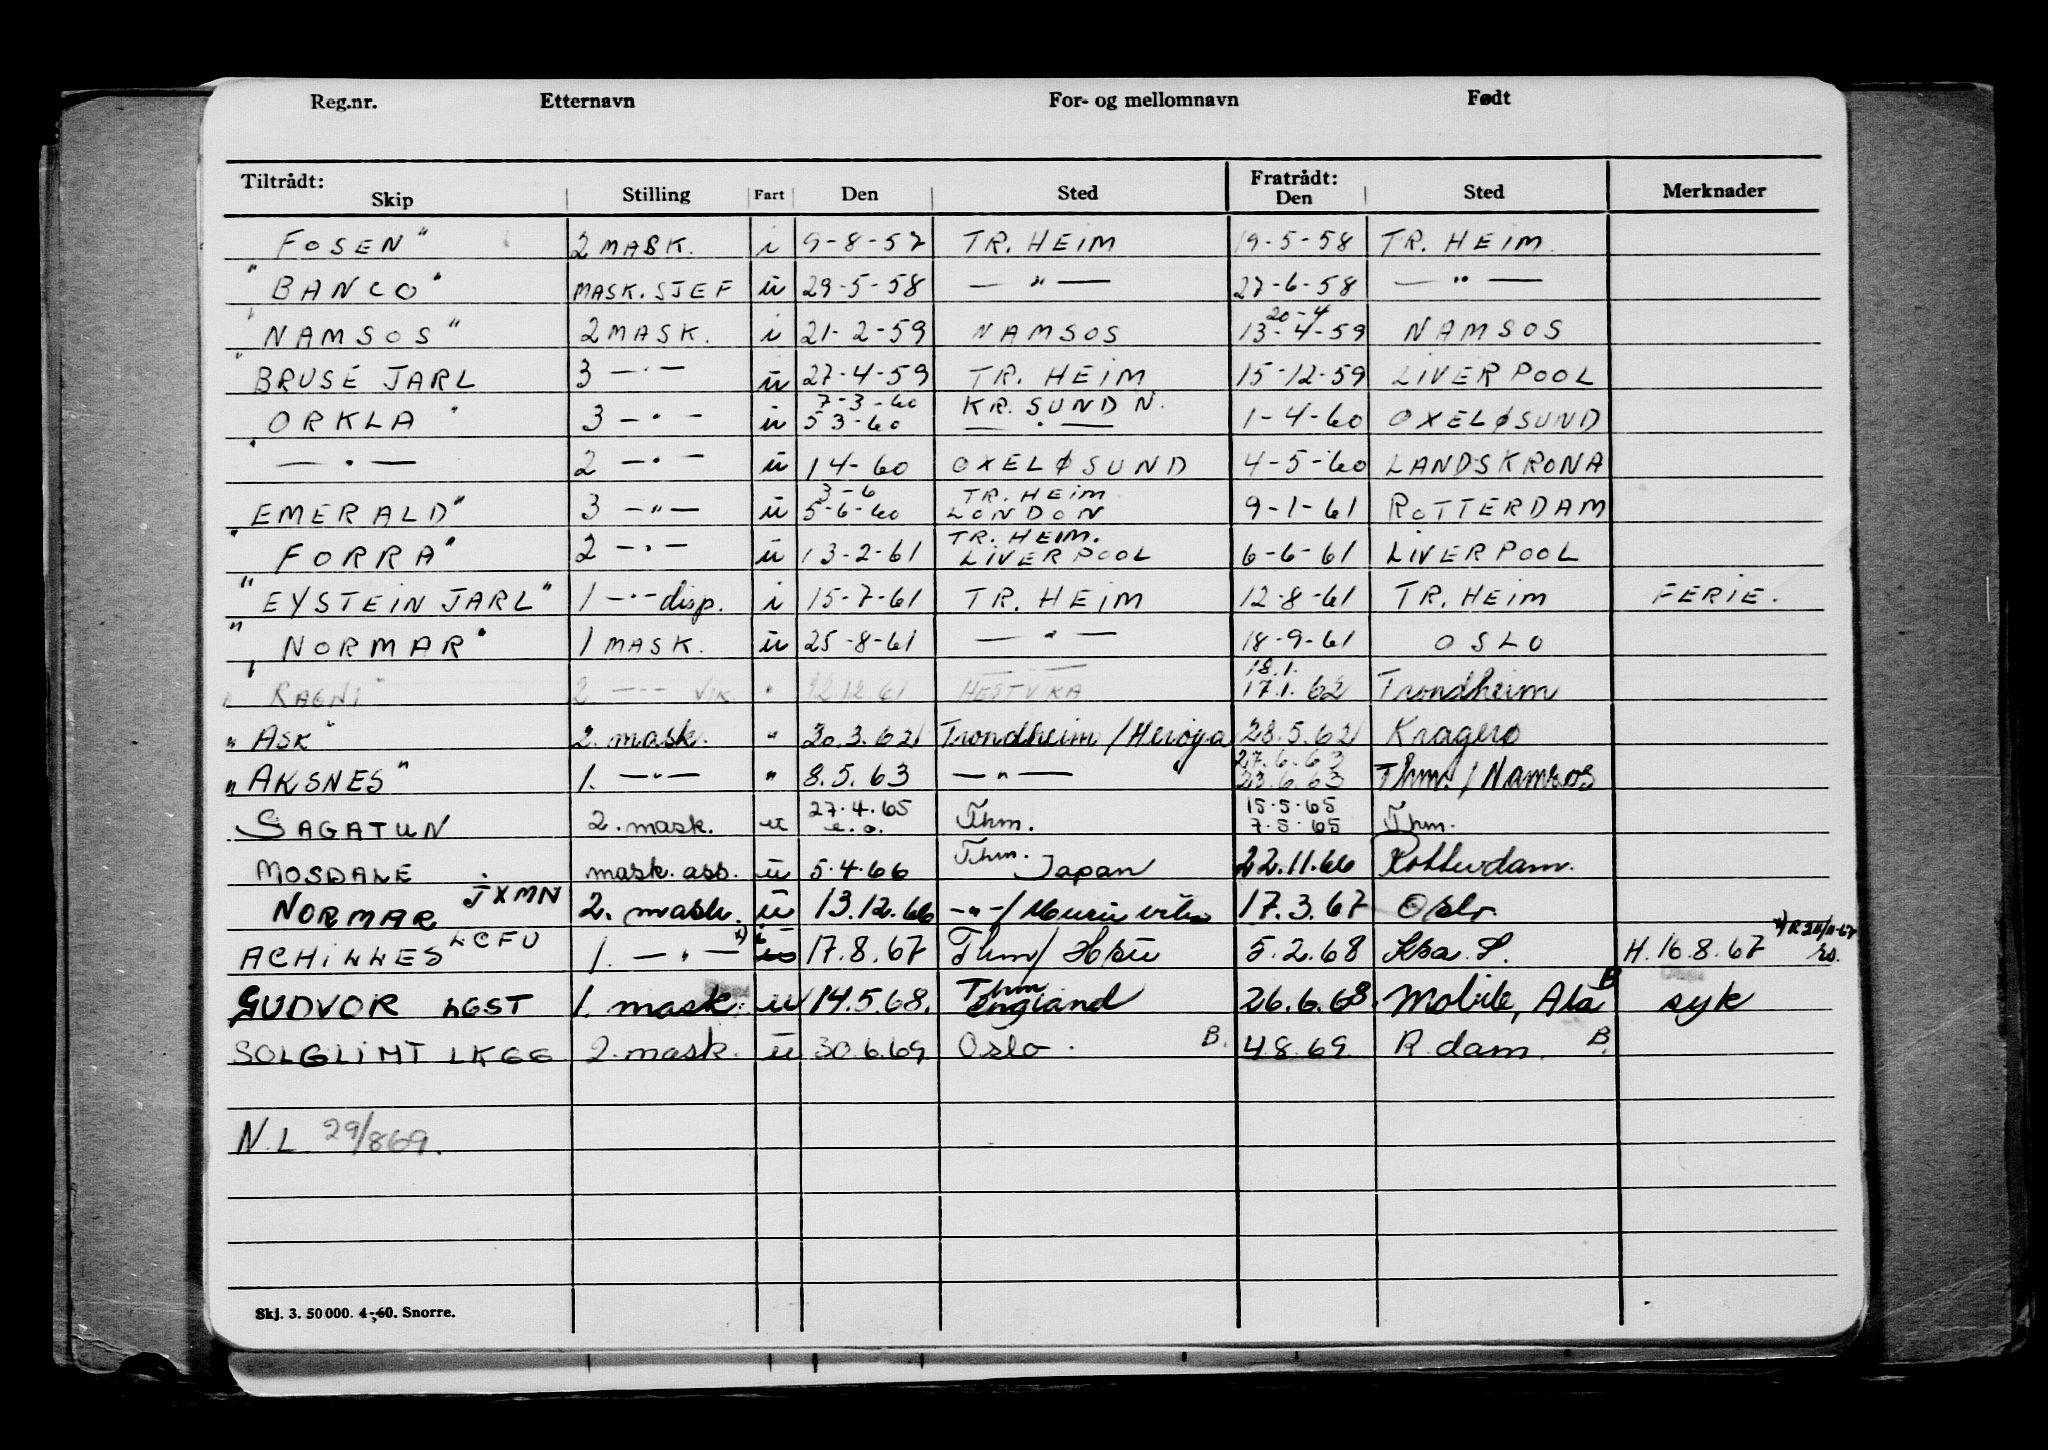 Reg.nr. Etternavn For- og mellomnavn Født
Tiltrådt: Fratrådt:
Skip Stilling Fart Den Sted Den Sted Merknader
FOSEN" 2 MASK. i 9-8-57 TR. HEIM 19-5-58 TR. HEIM.
"BANCO" MASK. SJEF u 29-5-58 — " — 27-6-58 — " —
20-4
"NAMSOS" 2 MASK. i 21-2-59 NAMSOS 13-4-59 NAMSOS
"BRUSE JARL 3 — " — u 27-4-59 TR. HEIM 15-12-59 LIVERPOOL
7-3-60 KR. SUND N.
ORKLA" 3 — " — u 5 3-60 — " — 1-4-60 OXELØSUND
" — " — 2 — " — u 14-60 OXELØSUND 4-5-60 LANDSKRONA
3-6 TR. HEIM
EMERALD" 3 — " — u 5-6-60 LONDON 9-1-61 ROTTERDAM
TR. HEIM.
"FORRA" 2 — " — u 13-2-61 LIVERPOOL 6-6-61 LIVERPOOL
"EYSTEIN JARL" 1 — " — disp. i 15-7-61 TR. HEIM 12-8-61 TR. HEIM FERIE.
"NORMAR" 1 MASK. u 25-8-61 — " — 18-9-61 OSLO
18.1.
"RAGNI" 2 — " — VIK. " 12.12.61 HESTVIKA 17.1.62 Trondheim
"ASK" 2. mask. " 20.3.62 Trondheim / Herøya 28.5.62 Kragerø
27.6.63
"AKSNES" 1. — " — " 8.5.63 — " — 23.6.63 Thm. / Namsos
27.4.65 15.5.65
SAGATUN 2. mask. u e.o. Thm. 7.5.65 Thm.
Thm.
MOSDALE mask. ass. u 5.4.66 Japan 22.11.66 Rotterdam.
NORMAR JXMN 2. mask. u 13.12.66 — " — / 17.3.67 Oslo.
ACHILLES LCFU 1. — " — x) 17.8.67 Thm/ 5.2.68 H. 16.8.67 rs.
Thm
GUDVOR LGST 1. mask. u 14.5.68. England 26.6.68. Mobile, Ala B syk
SOLGLIMT LKGG 2. mask. u 30.6.69. Oslo. B. 4.8.69. R.dam. B.
N.L. 29/869.
Skj. 3. 50000. 4-60. Snorre.